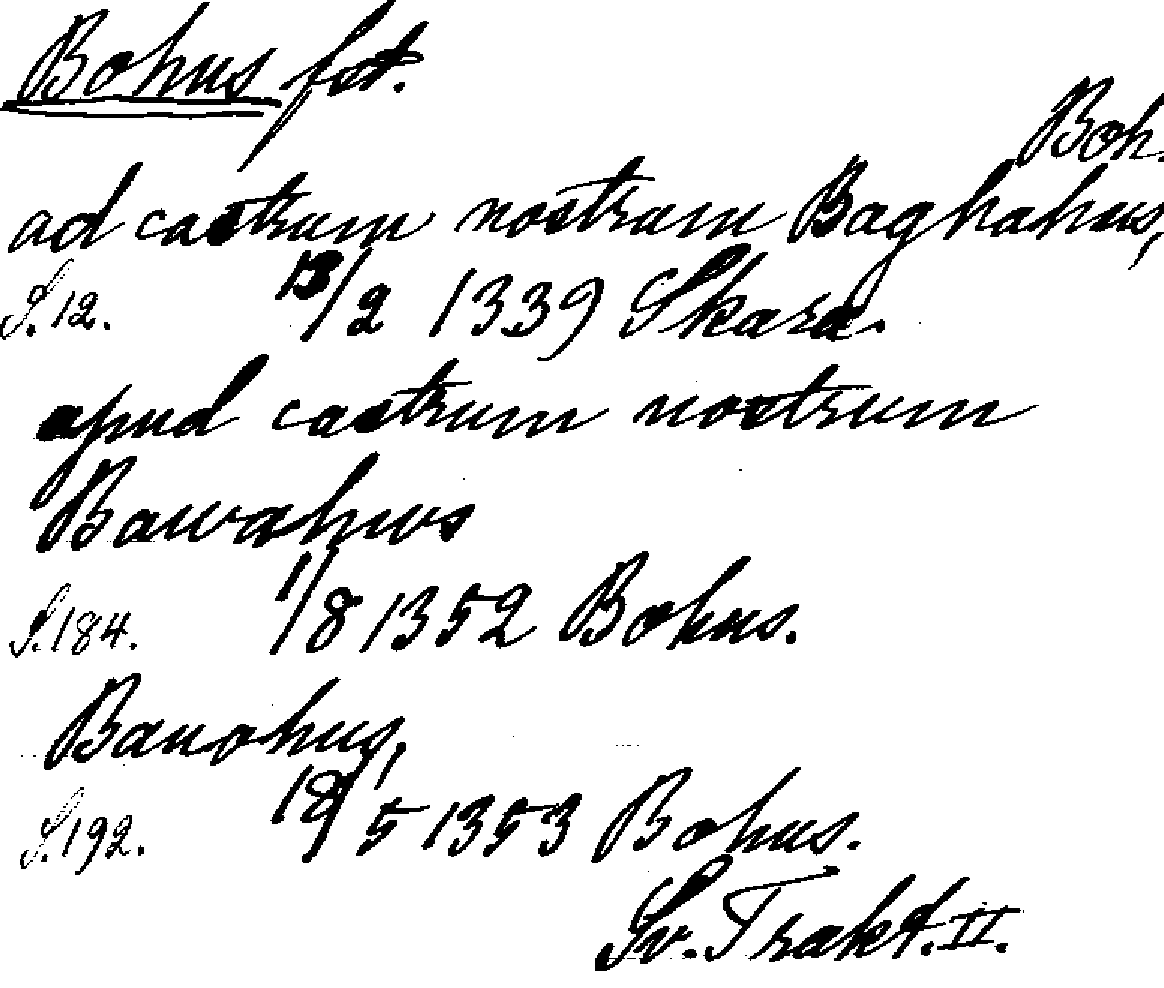 Bohus fst.
Boh.
ad castrum nostrum Baghahus,
S. 12. 13/2 1339 Skara.
apud castrum nostrum
Bawahws
S. 184. 1/8 1352 Bohus.
Bauohus,
S. 192. 18/5 1353 Bohus.
Sv. Trakt. II.